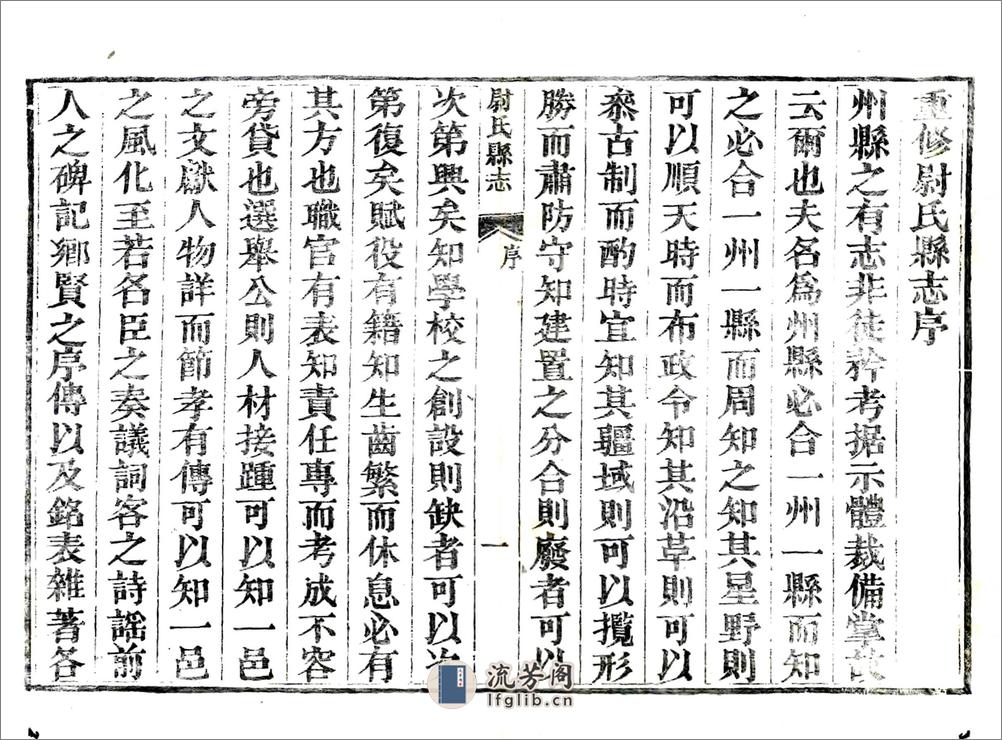 重修尉氏縣志序
州縣之有志非徒矜考据示體裁備掌故
云爾也夫名爲州縣必合一州一縣而知
之必合一州一縣而周知之知其星野則
可以順天時而布政令知其沿革則可以
叅古制而酌時宜知其疆域則可以攬形
勝而肅防守知建置之分合則廢者可以
尉氏縣志
序
一
次第興矣知學校之創設則缺者可以次
第復矣賦役有籍知生齒繁而休息必有
其方也職官有表知責任專而考成不容
旁貸也選舉公則人材接踵可以知一邑
之文獻人物詳而節孝有傳可以知一邑
之風化至若名臣之奏議詞客之詩謡前
人之碑記鄉賢之序傳以及銘表雜著各
流芳阁
lfglib.cn